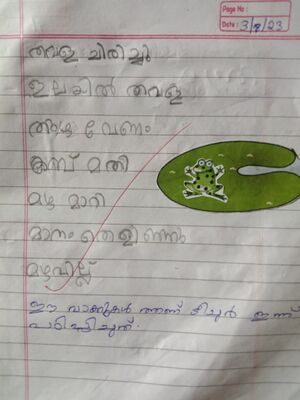 Page No :
Date : 3/8/23
തവള ചിരിച്ചു
ഇലയിൽ തവള
വേണം
മതി
മഴ മാറി
മാനം തെളിഞ്ഞു
മഴവില്ല്
ഈ വാക്കുകൾ ആണ് ടീച്ചർ ഇന്ന്
പഠിപ്പിച്ചത്.